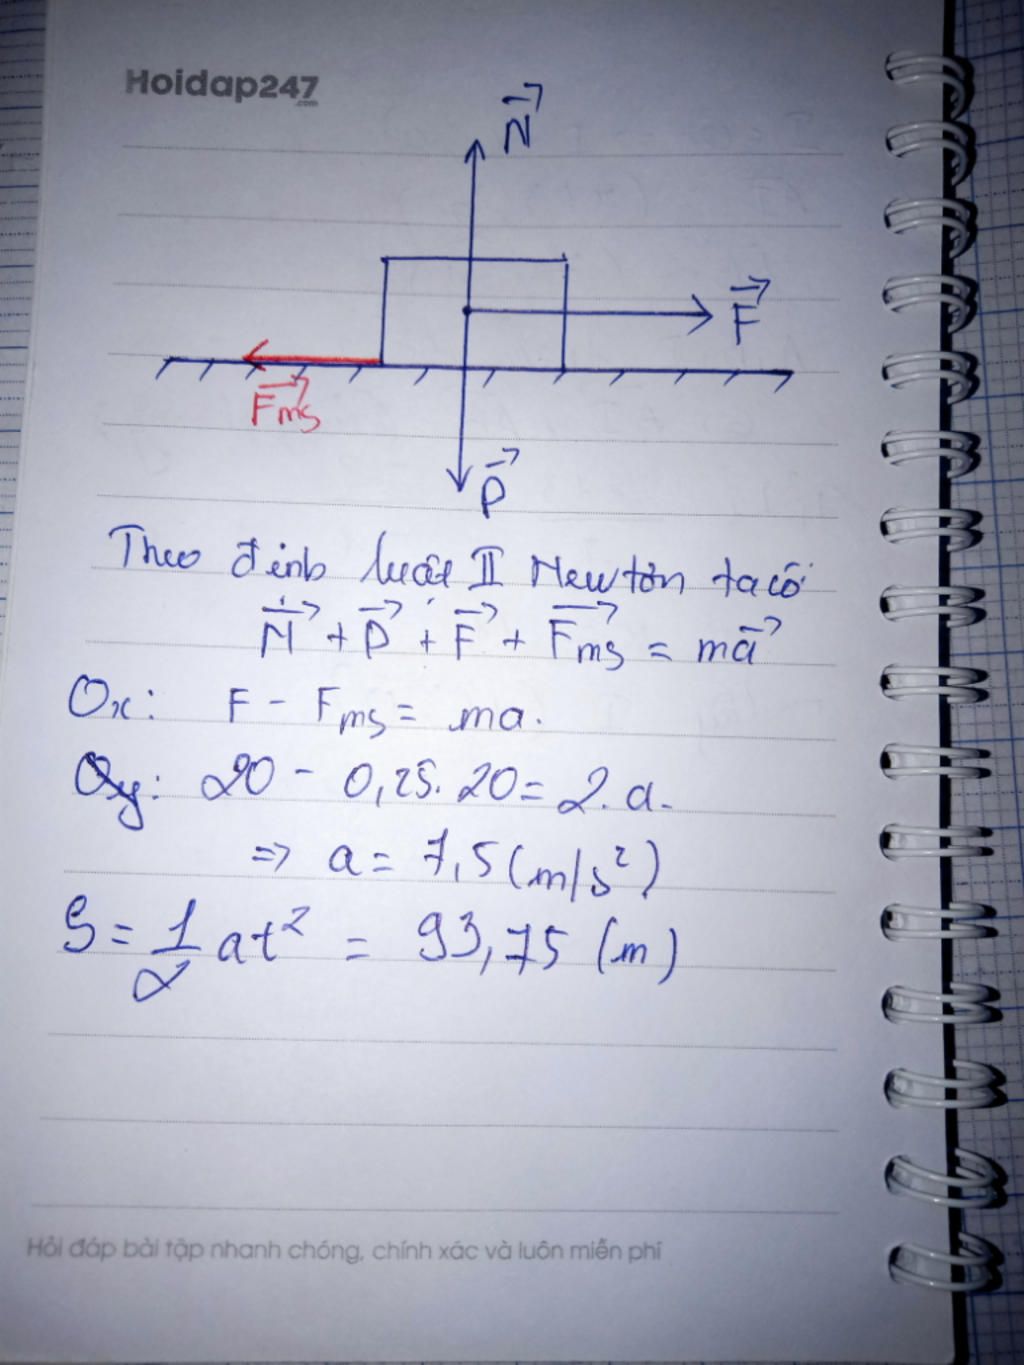 Hoidap247
.com
N
F
Fms
P
Theo định luật II Newtơn ta có
N + P + F + Fms = ma
Ox: F - Fms = ma.
Oy: 20 - 0,25.20 = 2.a.
=> a = 7,5 (m/s²)
S = 1/2 at² = 93,75 (m)
Hỏi đáp bài tập nhanh chóng, chính xác và luôn miễn phí